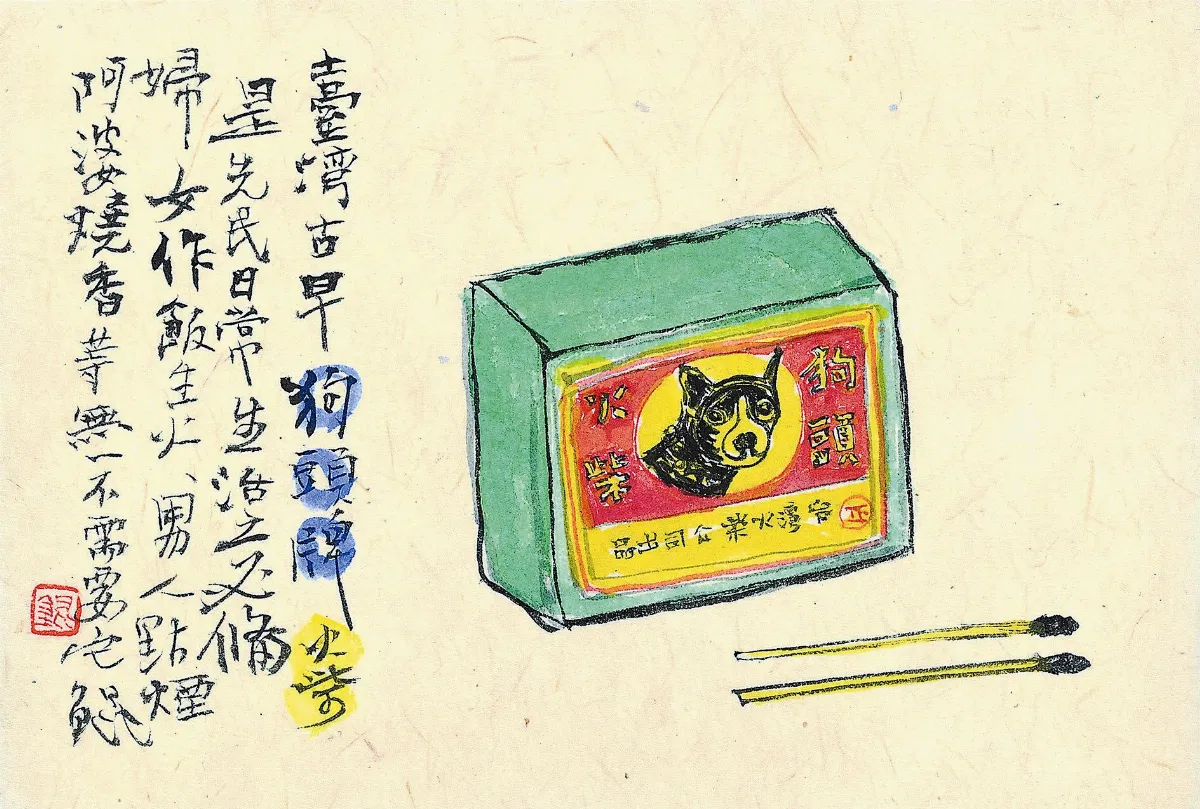 臺灣古早狗頭牌火柴
是先民日常生活之必備
婦女作飯生火、男人點煙
阿婆燒香等無一不需要它 鯤
狗頭
火柴
台灣火柴公司出品